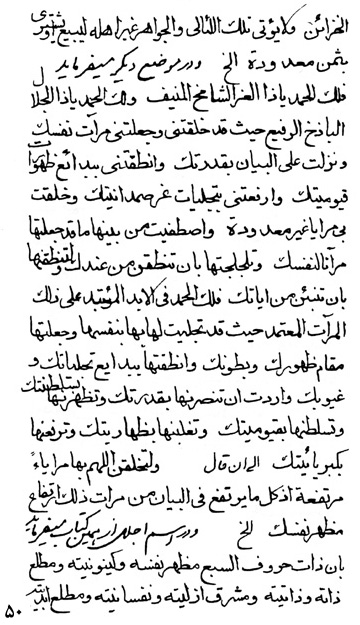 الخزائن ولایؤتی تلك اللئالی والجواهر غیر اهله لیبیع بثمن معدودة الخ ودر موضع دیگر میفرماید
فلك الحمد یاذا العز الشامخ المنیف ولك الحمد یاذا الجلال
الباذخ الرفیع حیث قد خلقتنی وجعلتنی مرآت نفسك
ونزلت علی البیان بقدرتك وانطقتنی ببدائع ظهورات
قیومیتك وارفعتنی بتجلیات عز صمدانیتك وخلقت
بی مرایا غیر معدودة واصطفیت من بینها ما قد جعلتها
مرآتا لنفسك وتلجلجتها بان تنطقن من عندك ولتنطقنها
بان تنبئن من ایاتك فلك الحمد فی الابد المؤبد علی ذلك
المرآت المعتمد حیث قد تجلیت لها بها بنفسها وجعلتها
مقام ظهورك وبطونك وانطقتها ببدایع تجلیاتك و
غیوبك واردت ان تنصرنها بقدرتك وتظهرنها بسلطنتك
وتسلطنها بقیومیتك وتغلبنها بظهاریتك وترفعنها
بکبریائیتك الی ان قال ولتخلقن اللهم بها مرایاء
مرتفعة اذ کل ما یرتفع فی البیان من مرآت ذلك ارتفاع
مظهر نفسك الخ ودر اسم اجلال از همین کتاب میفرماید
بان ذات حروف السبع مظهر نفسه وکینونیته ومطلع
ذاته وذاتیته ومشرق ازلیته ونفسانیته ومطلع ابدیته
۵۰